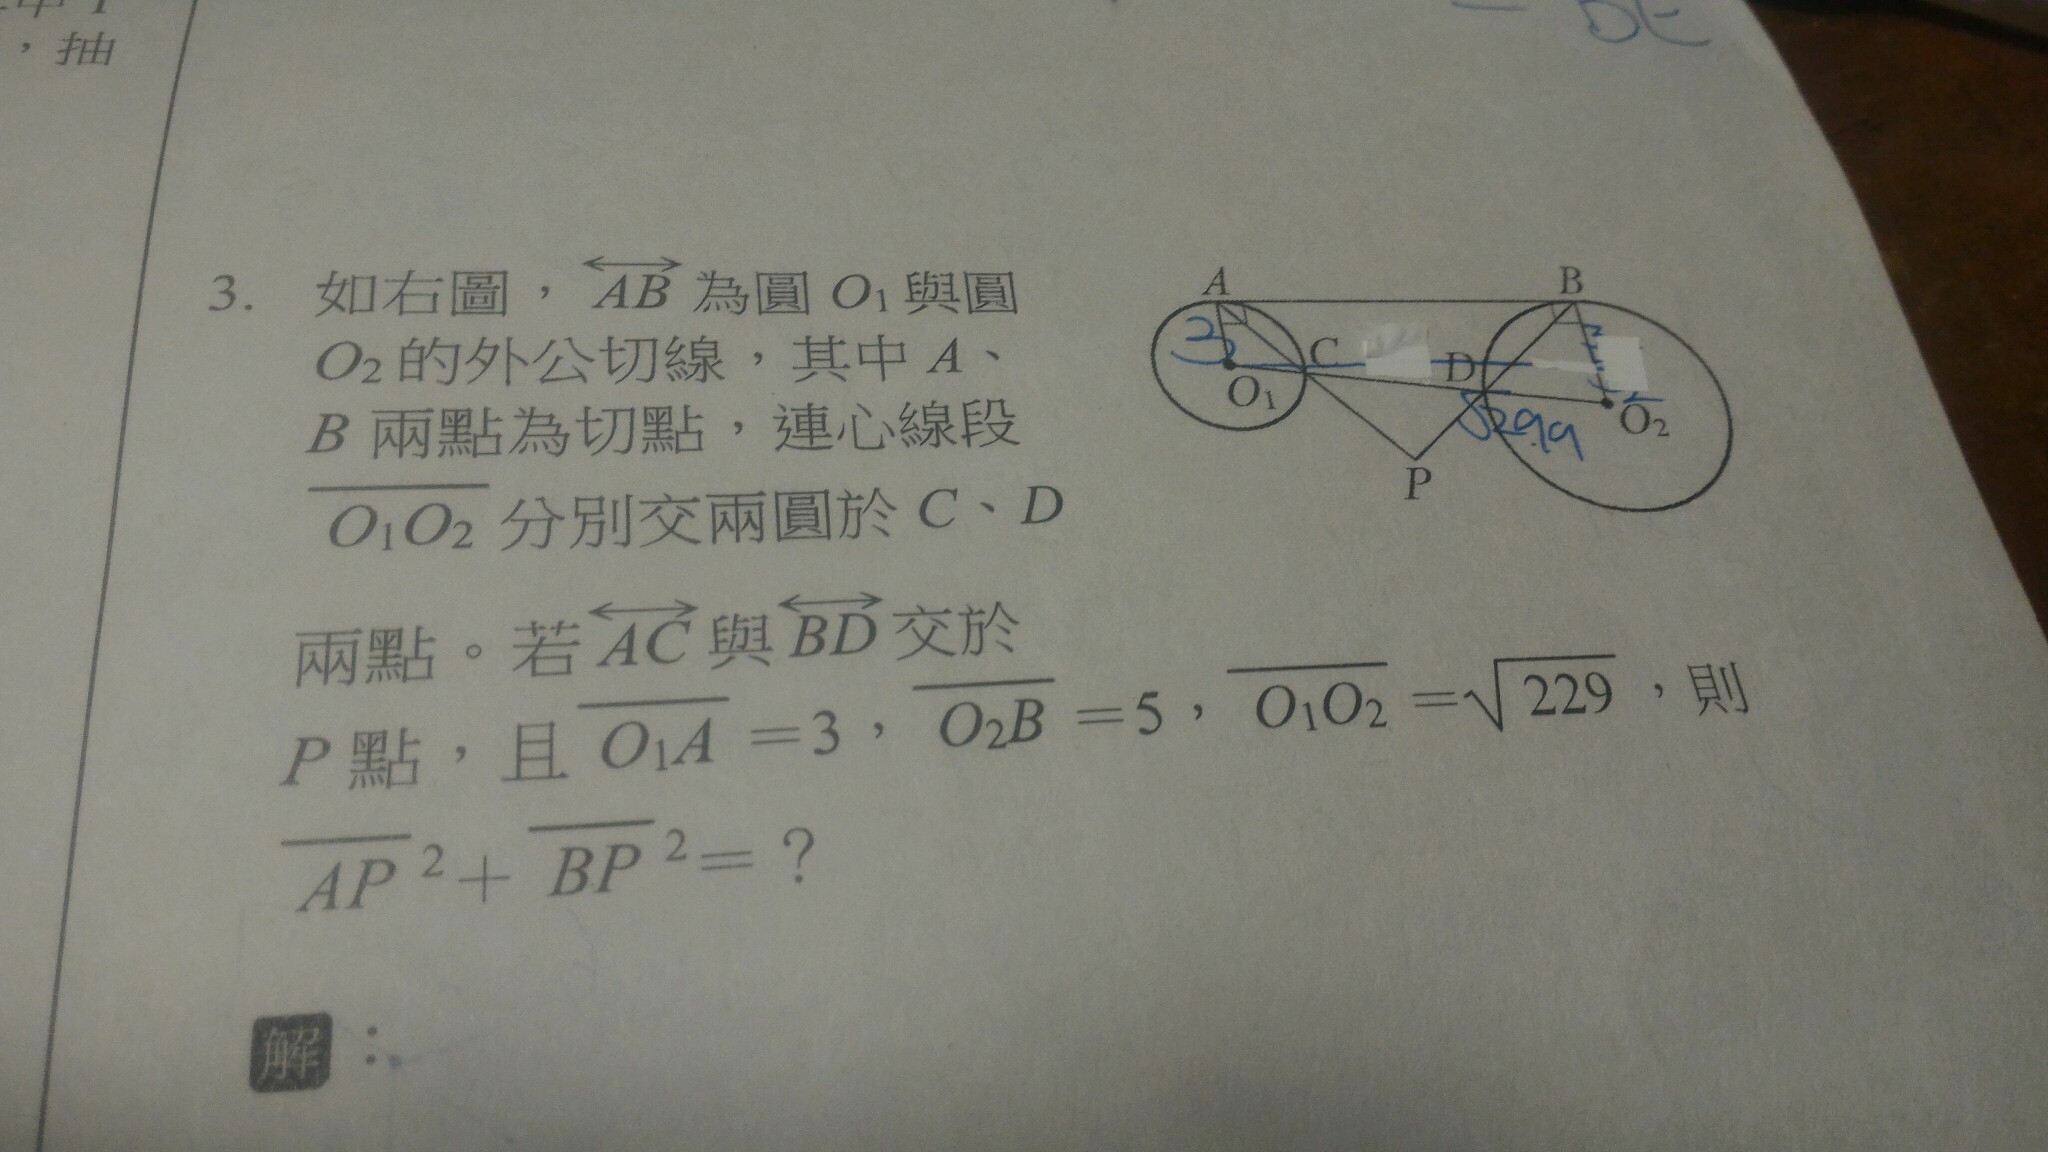 ，抽
3. 如右圖，AB 為圓 O₁ 與圓
O₂ 的外公切線，其中 A、
B 兩點為切點，連心線段
O₁O₂ 分別交兩圓於 C、D
兩點。若 AC 與 BD 交於
P 點，且 O₁A =3，O₂B =5，O₁O₂ =√229，則
AP ²+ BP ²=？
解：
A
B
C
D
O₁
O₂
P
3